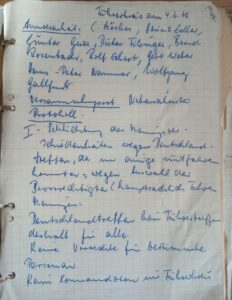 Führerkreis am 4.6.61
Anwesenheit: C. Küsher, Heinz Keller,
Günter Gero, Dieter Fibinger, Bernd
Rosenbach, Rolf Eckert, Gert Weber
Hans-Peter Wammer, Wolfgang
Gallfuß
Versammlungsort
Protokoll.
I Schlichtung der Meinungsver-
schiedenheiten wegen Deutschland-
treffen, da nur einige mitfahren
konnten, wegen Auswahl der
Bevorrechtigten (hauptsächlich Führer
Meinungen
Deutschlandtreffen kein Führertreffen
deshalb für alle
Keine Vorrechte für bestimmte
Personen
Kein Kommandoton im Führerkreis